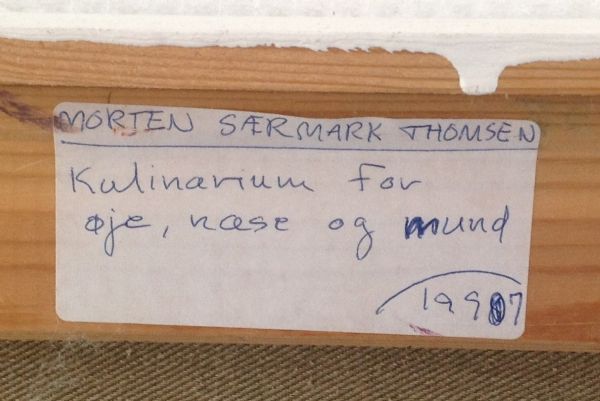 MORTEN SÆRMARK THOMSEN
Kulinarium for
øje, næse og mund
1997